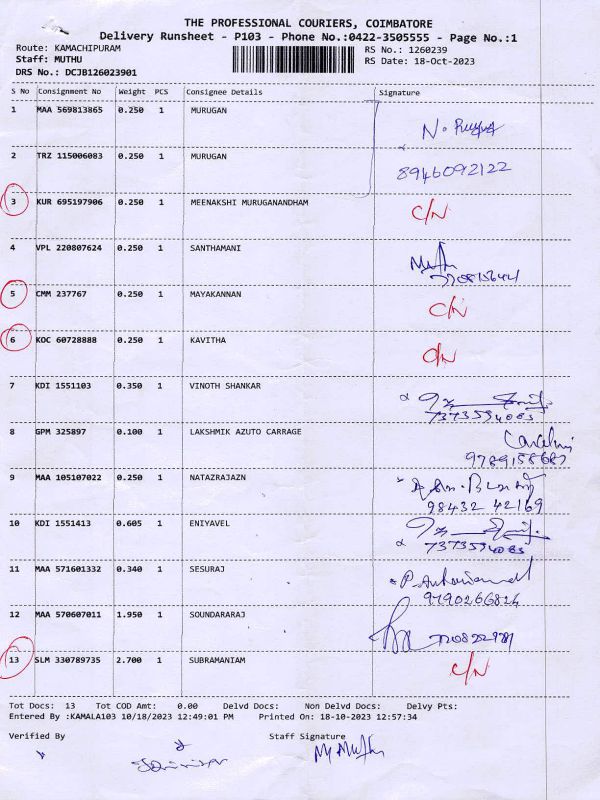 THE PROFESSIONAL COURIERS, COIMBATORE
Delivery Runsheet - P103 - Phone No.:0422-3505555 - Page No.:1
Route: KAMACHIPURAM RS No.: 1260239
Staff: MUTHU RS Date: 18-Oct-2023
DRS No.: DCJB126023901
S No Consignment No Weight PCS Consignee Details Signature
1 MAA 569813865 0.250 1 MURUGAN
2 TRZ 115006083 0.250 1 MURUGAN 8946092122
3 KUR 695197906 0.250 1 MEENAKSHI MURUGANANDHAM C/N
4 VPL 220807624 0.250 1 SANTHAMANI
5 CMM 237767 0.250 1 MAYAKANNAN C/N
6 KOC 60728888 0.250 1 KAVITHA C/N
7 KDI 1551103 0.350 1 VINOTH SHANKAR
7373594083
8 GPM 325897 0.100 1 LAKSHMIK AZUTO CARRAGE
9789158687
9 MAA 105107022 0.250 1 NATAZRAJAZN
98432 42169
10 KDI 1551413 0.605 1 ENIYAVEL
7373594083
11 MAA 571601332 0.340 1 SESURAJ
9790266824
12 MAA 570607011 1.950 1 SOUNDARARAJ
13 SLM 330789735 2.700 1 SUBRAMANIAM C/N
Tot Docs: 13 Tot COD Amt: 0.00 Delvd Docs: Non Delvd Docs: Delvy Pts:
Entered By :KAMALA103 10/18/2023 12:49:01 PM Printed On: 18-10-2023 12:57:34
Verified By Staff Signature